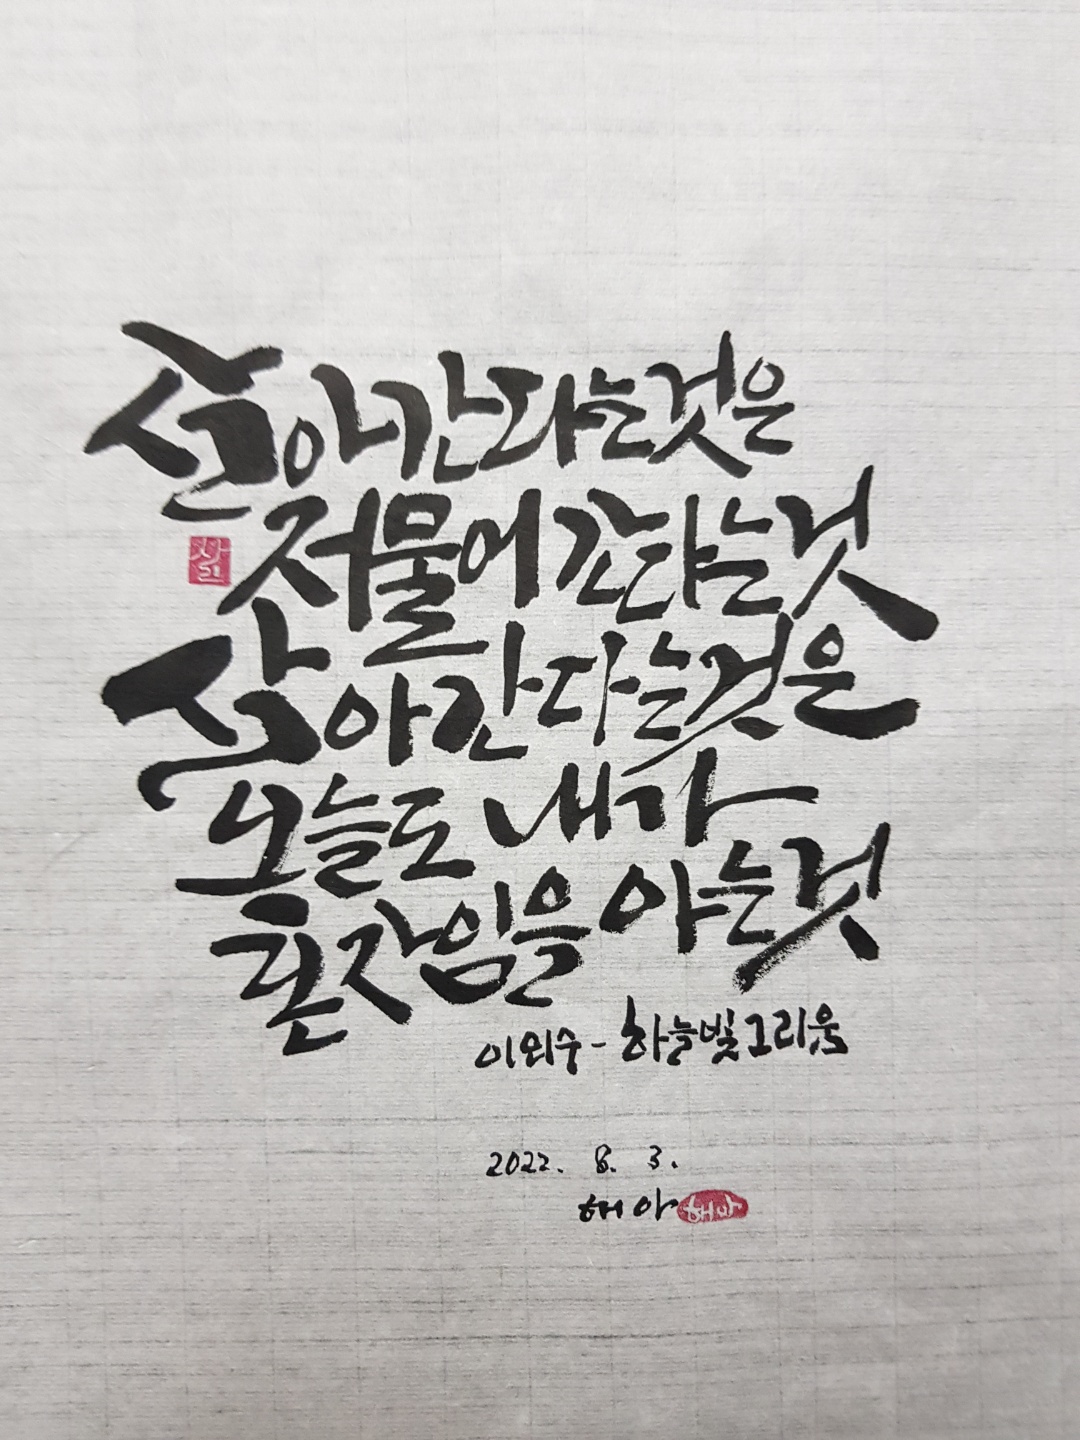 살아간다는것은
저물어 간다는것
살아간다는것은
오늘도 내가
혼자임을 아는것
이외수 - 하늘빛그리움
2022. 8. 3.
해아 해아